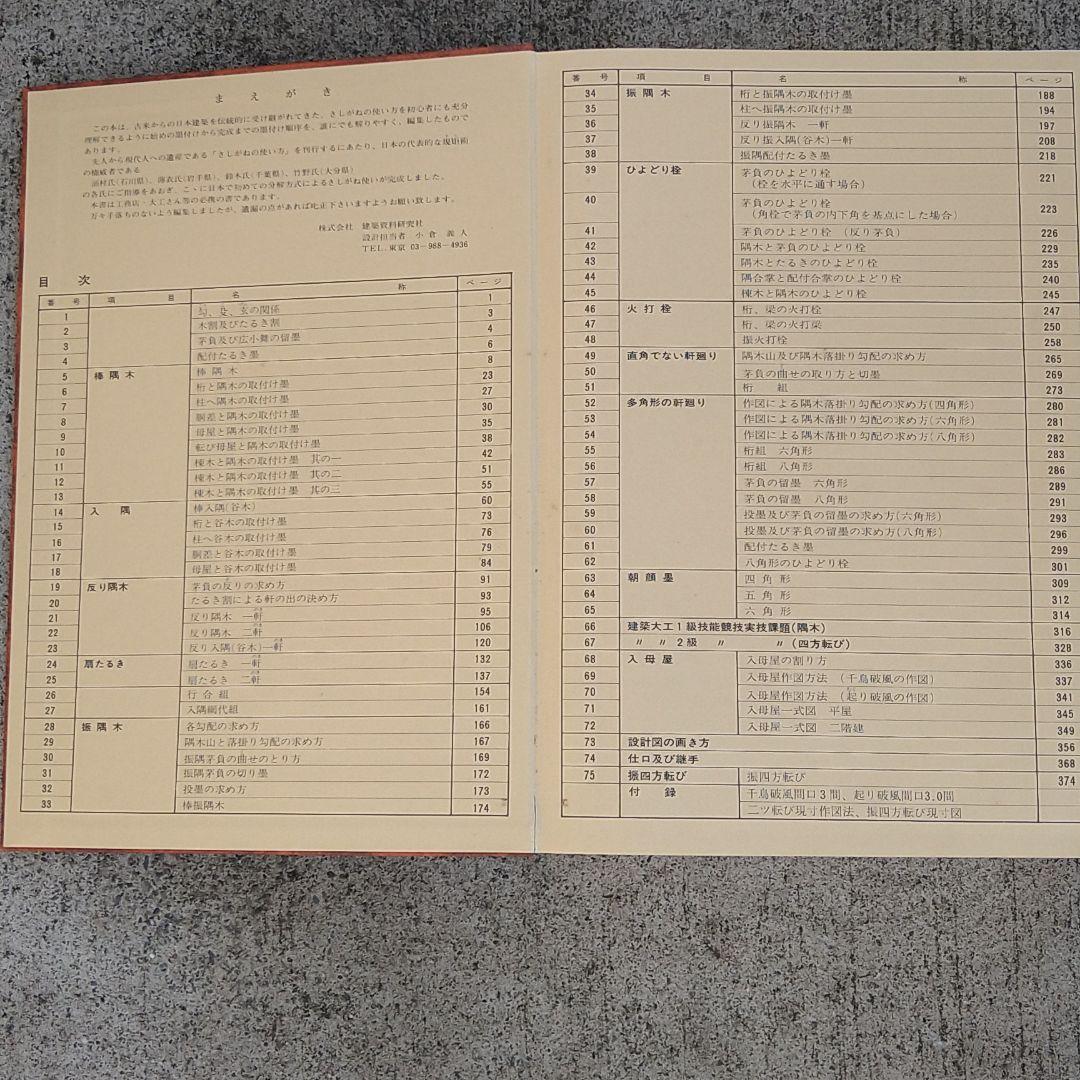 まえがき
この本は、古来からの日本建築を伝統的に受け継がれてきた、さしがねの使い方を初心者にも充分
理解できるように始めの墨付けから完成までの墨付け順序を、誰にでも解りやすく、編集したもので
あります。
先人から現代人への遺産である「さしがねの使い方」を刊行するにあたり、日本の代表的な規矩術
の権威者である
須村氏(石川県)、薄衣氏(岩手県)、鈴木氏(千葉県)、竹野氏(大分県)
の各氏にご指導をあおぎ、こゝに日本で初めての分解方式によるさしがね使いが完成しました。
本書は工務店・大工さん等の必携の書であります。
万々手落ちのないよう編集しましたが、遺漏の点があれば叱正下さいますようお願い致します。
株式会社 建築資料研究社
設計担当者 小倉義人
TEL.東京 03-988-4936
目 次
番 号 項 目 名 称 ページ
1 勾、殳、玄の関係 1
2 木割及びたるき割 3
3 茅負及び広小舞の留墨 4
4 配付たるき墨 6
5 棒隅木 棒隅木 8
6 桁と隅木の取付け墨 23
7 柱へ隅木の取付け墨 27
8 胴差と隅木の取付け墨 30
9 母屋と隅木の取付け墨 35
10 転び母屋と隅木の取付け墨 38
11 棟木と隅木の取付け墨 其の一 42
12 棟木と隅木の取付け墨 其の二 51
13 棟木と隅木の取付け墨 其の三 55
14 入 隅 棒入隅(谷木) 60
15 桁と谷木の取付け墨 73
16 柱へ谷木の取付け墨 76
17 胴差と谷木の取付け墨 79
18 母屋と谷木の取付け墨 84
19 反り隅木 茅負の反りの求め方 91
20 たるき割による軒の出の決め方 93
21 反り隅木 一軒 95
22 反り隅木 二軒 106
23 反り入隅(谷木)一軒 120
24 扇たるき 扇たるき 一軒 132
25 扇たるき 二軒 137
26 行合組 154
27 入隅網代組 161
28 振隅木 各勾配の求め方 166
29 隅木山と落掛り勾配の求め方 167
30 振隅茅負の曲せのとり方 169
31 振隅茅負の切り墨 172
32 投墨の求め方 173
33 棒振隅木 174
番 号 項 目 名 称 ページ
34 振隅木 桁と振隅木の取付け墨 188
35 柱へ振隅木の取付け墨 194
36 反り振隅木 一軒 197
37 反り振入隅(谷木)一軒 208
38 振隅配付たるき墨 218
39 ひよどり栓 茅負のひよどり栓 221
(栓を水平に通す場合)
40 茅負のひよどり栓 223
(角栓で茅負の内下角を基点にした場合)
41 茅負のひよどり栓 (反り茅負) 226
42 隅木と茅負のひよどり栓 229
43 隅木とたるきのひよどり栓 235
44 隅合掌と配付合掌のひよどり栓 240
45 棟木と隅木のひよどり栓 245
46 火打栓 桁、梁の火打栓 247
47 桁、梁の火打梁 250
48 振火打栓 258
49 直角でない軒廻り 隅木山及び隅木落掛り勾配の求め方 265
50 茅負の曲せの取り方と切墨 269
51 桁 組 273
52 多角形の軒廻り 作図による隅木落掛り勾配の求め方(四角形) 280
53 作図による隅木落掛り勾配の求め方(六角形) 281
54 作図による隅木落掛り勾配の求め方(八角形) 282
55 桁組 六角形 283
56 桁組 八角形 286
57 茅負の留墨 六角形 289
58 茅負の留墨 八角形 291
59 投墨及び茅負の留墨の求め方(六角形) 293
60 投墨及び茅負の留墨の求め方(八角形) 296
61 配付たるき墨 299
62 八角形のひよどり栓 301
63 朝顔墨 四角形 309
64 五角形 312
65 六角形 314
66 建築大工1級技能競技実技課題(隅木) 316
67 〃 〃 2級 〃 〃(四方転び) 328
68 入母屋 入母屋の割り方 336
69 入母屋作図方法 (千鳥破風の作図) 337
70 入母屋作図方法 (起り破風の作図) 341
71 入母屋一式図 平屋 345
72 入母屋一式図 二階建 349
73 設計図の画き方 356
74 仕口及び継手 368
75 振四方転び 振四方転び 374
付 録 千鳥破風間口3間、起り破風間口3.0間
二ツ転び現寸作図法、振四方転び現寸図